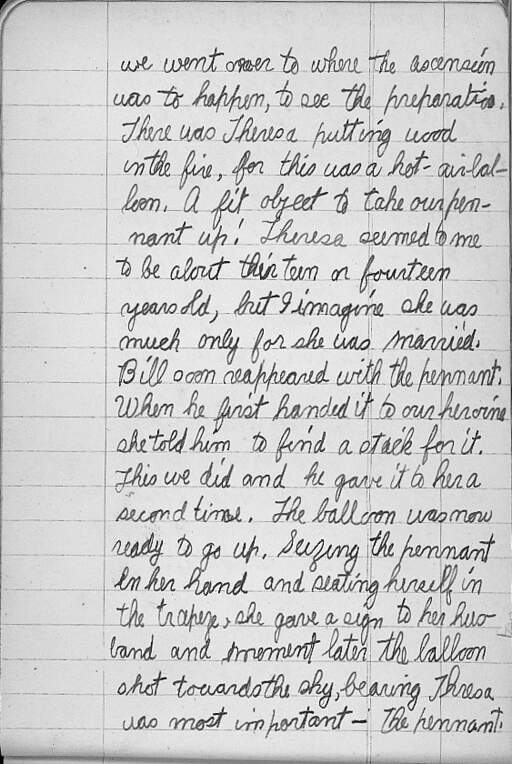 we went over to where the ascension
was to happen, to see the preparation.
There was Theresa putting wood
in the fire, for this was a hot-air-bal-
loon. A fit object to take our pen-
nant up! Theresa seemed to me
to be about thirteen or fourteen
years old, but I imagine she was
much only for she was married.
Bill soon reappeared with the pennant.
When he first handed it to our heroine
she told him to find a stick for it.
This we did and he gave it to her a
second time. The balloon was now
ready to go up. Seizing the pennant
in her hand and seating herself in
the trapeze, she gave a sign to her hus-
band and moment later the balloon
shot towards the sky, bearing Thresa
was most important — The pennant.